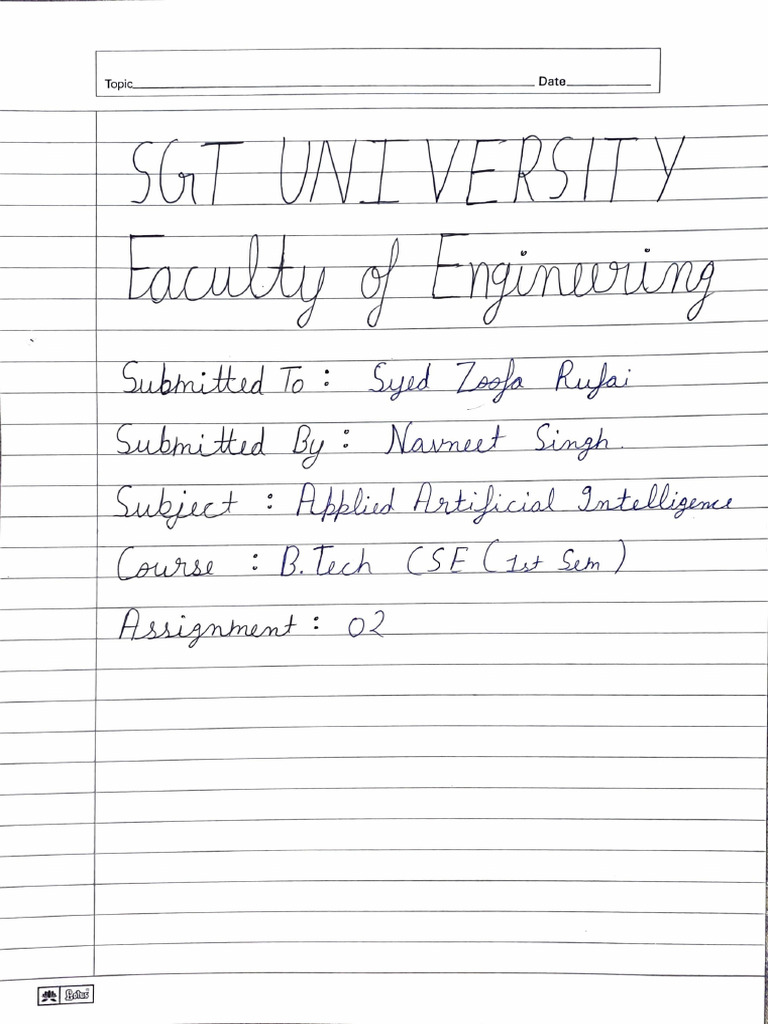 Topic Date
SGT UNIVERSITY
Faculty of Engineering
Submitted To : Syed Zoofa Rufai
Submitted By : Navneet Singh
Subject : Applied Artificial Intelligence
Course : B.Tech CSE (1st Sem)
Assignment : 02
Lotus